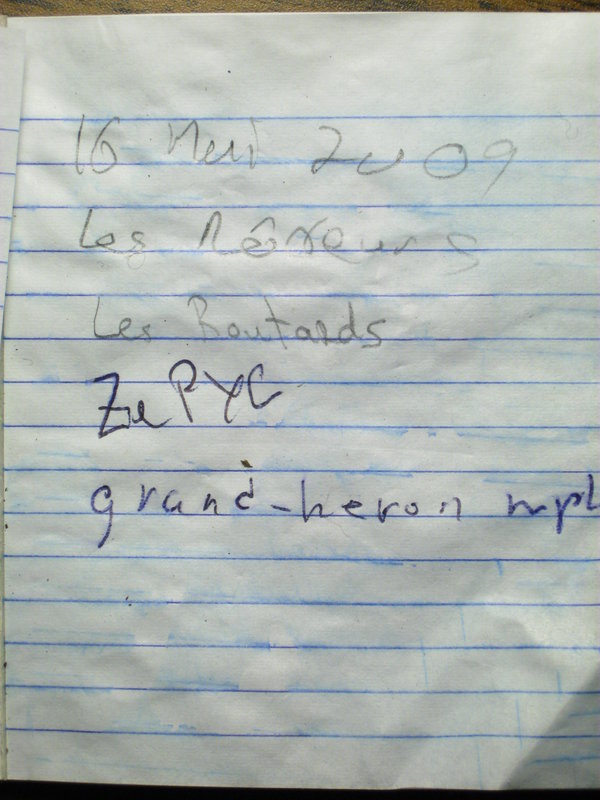 16 Mai 2009
Les
Les Boutards
Ze PYC
grand-heron mpl